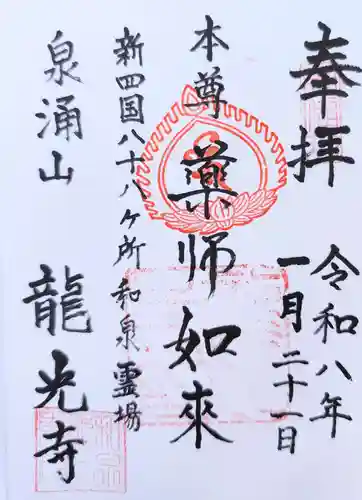 奉拝
令和八年
一月二十一日
本尊 薬師如來
新四国八十八ヶ所 和泉霊場
泉涌山 龍光寺